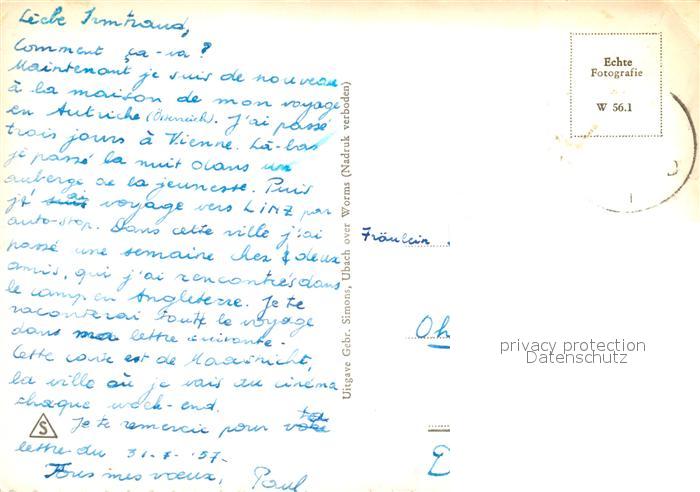 Liebe Irmtraud,
Comment ça-va?
Maintenant je suis de nouveau
à la maison de mon voyage
en Autriche (Österreich). J'ai passé
trois jours à Vienne. Là-bas
j'ai passé la nuit dans un
auberge de la jeunesse. Puis
j'ai voyagé vers LINZ par
auto-stop. Dans cette ville j'ai
passé une semaine chez deux
amis, qui j'ai rencontrés dans
le camp en Angleterre. Je te
raconterai toute le voyage
dans ma lettre suivante.
Cette carte est de Maastricht,
la ville où je vais au cinéma
chaque week-end.
S Je te remercie pour ta
lettre du 31-7-'57.
Tous mes vœux, Paul
Uitgave Gebr. Simons, Ubach over Worms (Nadruk verboden)
Echte
Fotografie
W 56.1
Fräulein
Oh
privacy protection
Datenschutz
D